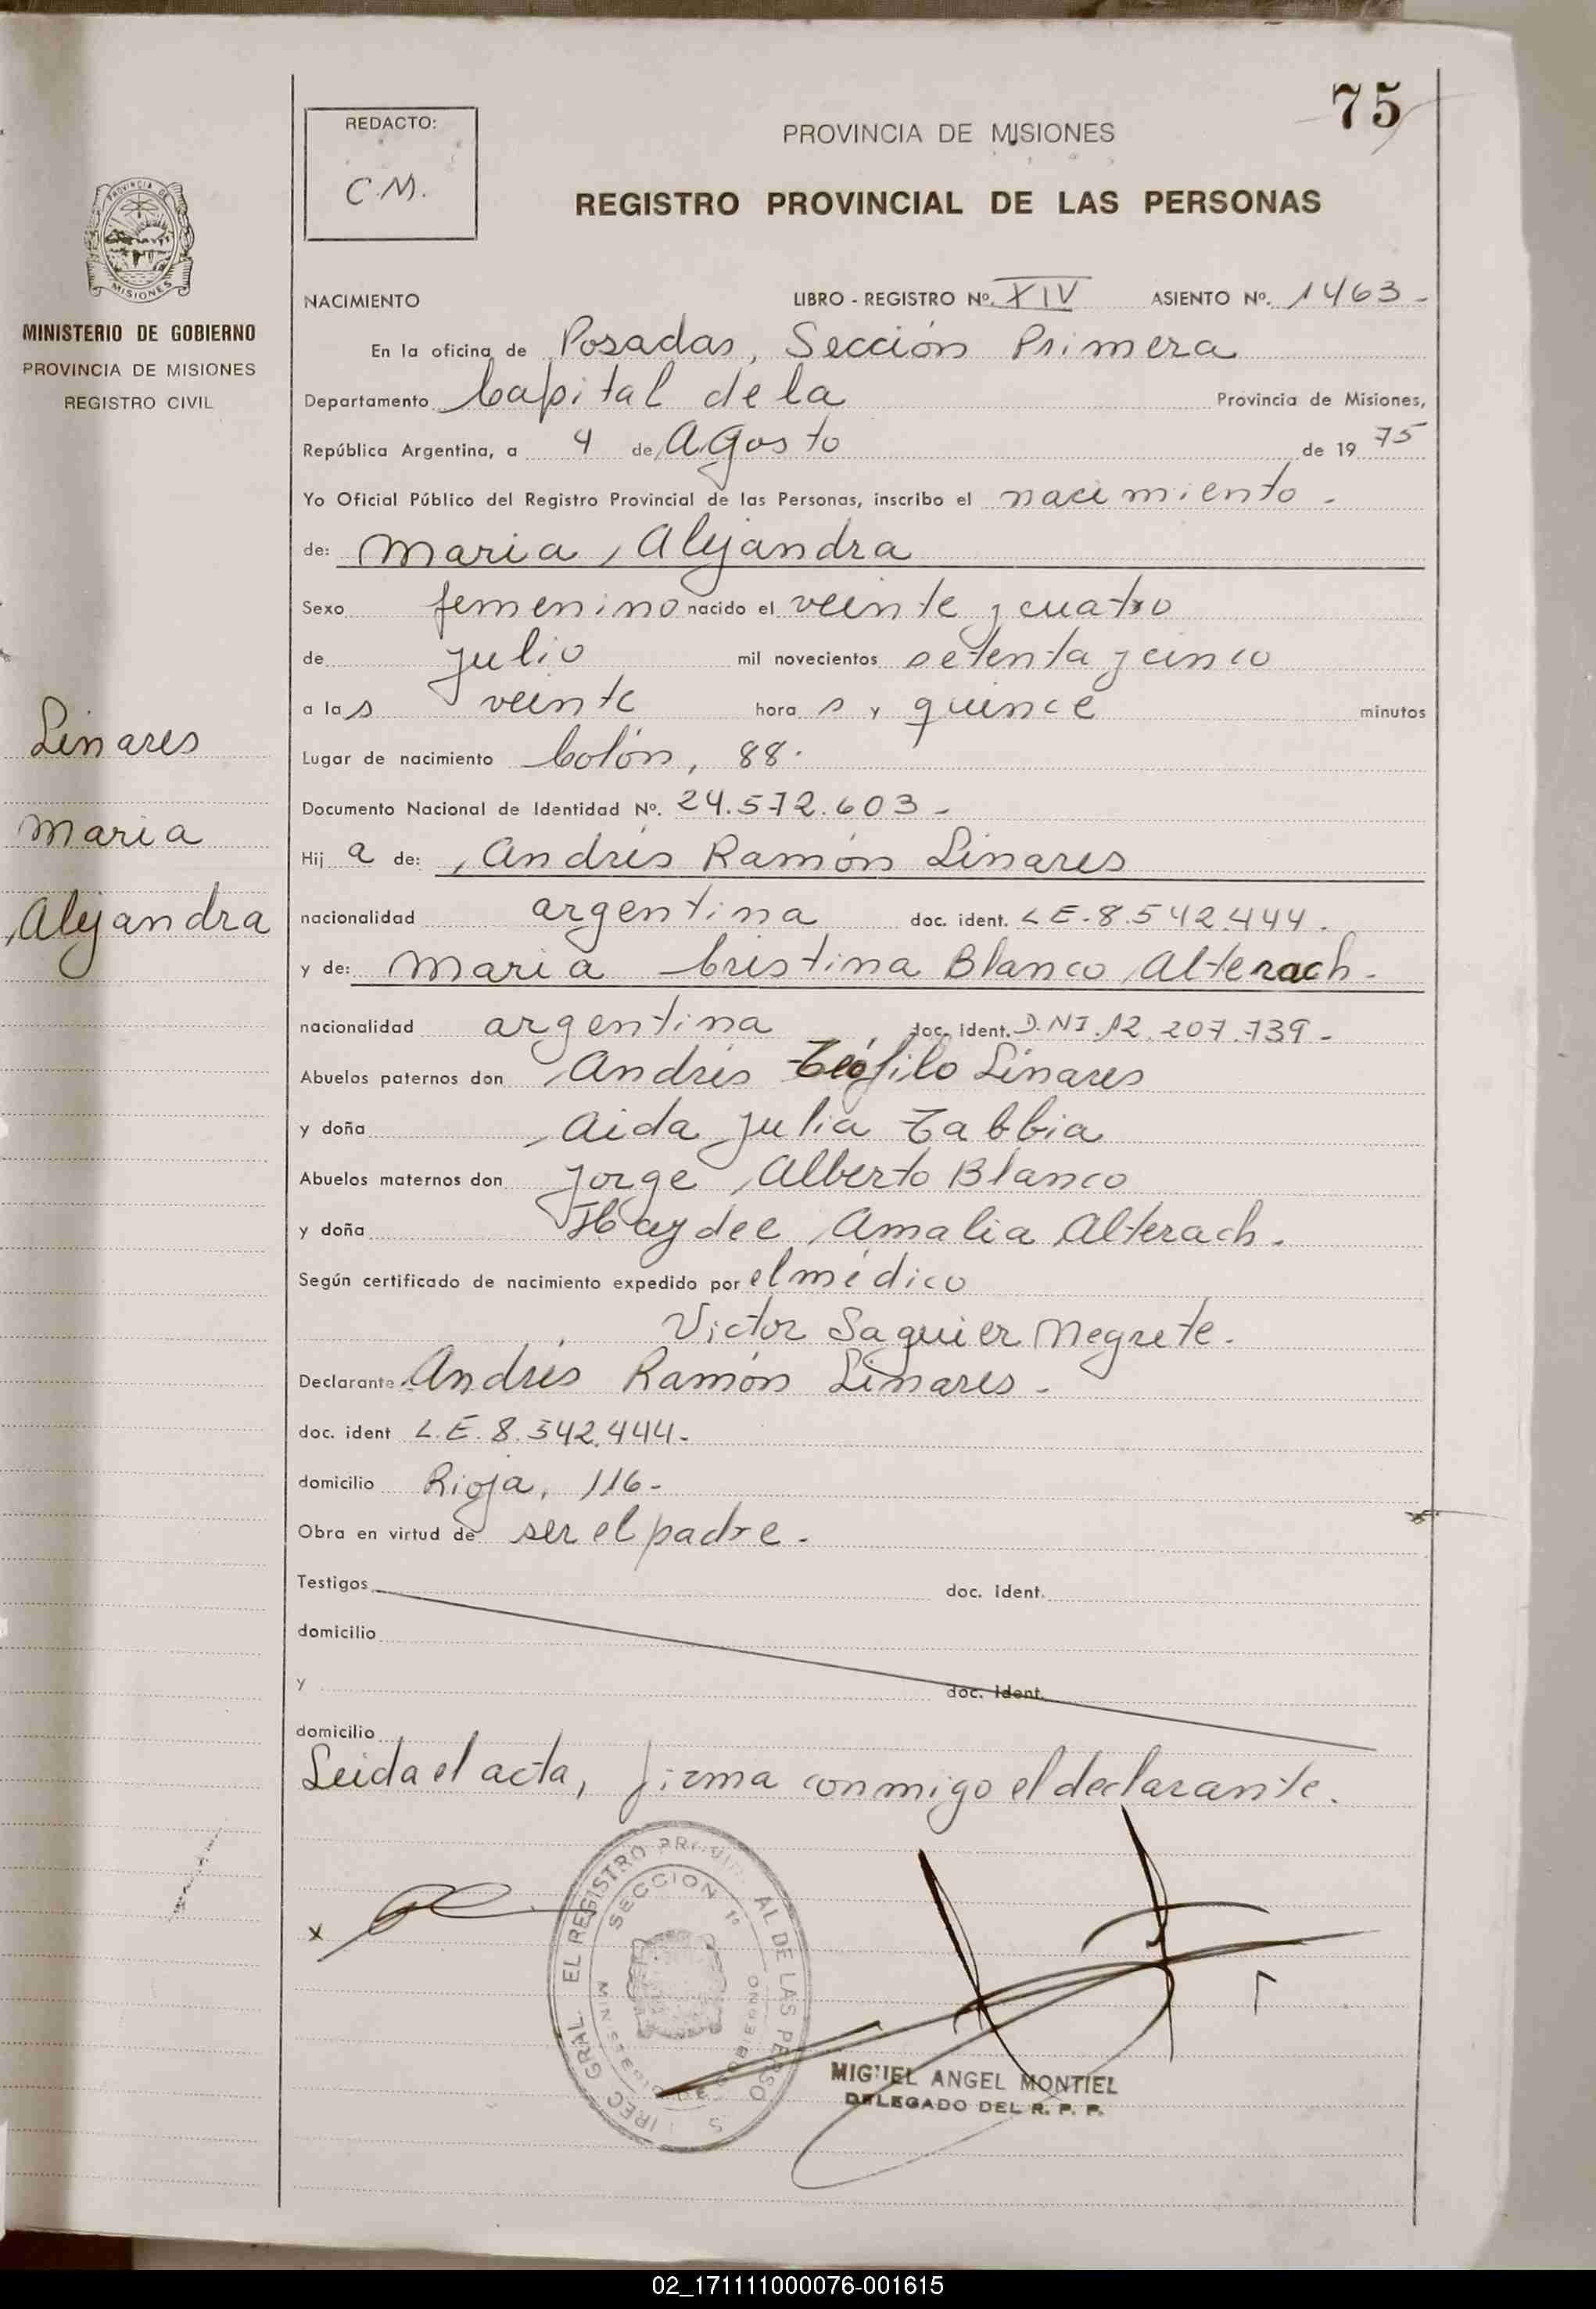 75
REDACTO:
C.M.
PROVINCIA DE MISIONES
REGISTRO PROVINCIAL DE LAS PERSONAS
PROVINCIA DE
MISIONES
MINISTERIO DE GOBIERNO
PROVINCIA DE MISIONES
REGISTRO CIVIL
NACIMIENTO LIBRO - REGISTRO Nº. XIV ASIENTO Nº. 1463-
En la oficina de Posadas, Sección Primera
Departamento Capital de la Provincia de Misiones,
República Argentina, a 4 de Agosto de 1975
Yo Oficial Público del Registro Provincial de las Personas, inscribo el nacimiento -
de: Maria Alejandra
Sexo femenino nacido el veinte y cuatro
de julio mil novecientos setenta y cinco
a las veinte horas y quince minutos
Lugar de nacimiento Colón, 88.
Documento Nacional de Identidad Nº. 24.572.603-
Hija de: Andrés Ramón Linares
nacionalidad argentina doc. ident. L E-8.542.444.
y de: Maria Cristina Blanco Alterach-
nacionalidad argentina doc. ident. D.N I.12.207.739-
Abuelos paternos don Andrés Teófilo Linares
y doña Aida Julia Tabbia
Abuelos maternos don Jorge Alberto Blanco
y doña Haydee Amalia Alterach.
Según certificado de nacimiento expedido por el médico
Victor Saguier Negrete.
Declarante Andrés Ramón Linares-
doc. ident L.E. 8.542.444-
domicilio Rioja, 116-
Obra en virtud de ser el padre-
Testigos doc. ident.
domicilio
y doc. Ident.
domicilio
Leida el acta, firma conmigo el declarante.
Linares
Maria
Alejandra
x
SECCION 1º
MINISTERIO DE GOBIERNO
MIGUEL ANGEL MONTIEL
DELEGADO DEL R. P. P.
02_171111000076-001615